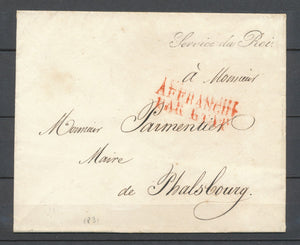 Service du Roi
à Monsieur
AFFRANCHI
PAR ETAT
Monsieur Parmentier
Maire
de Phalsbourg.
1831